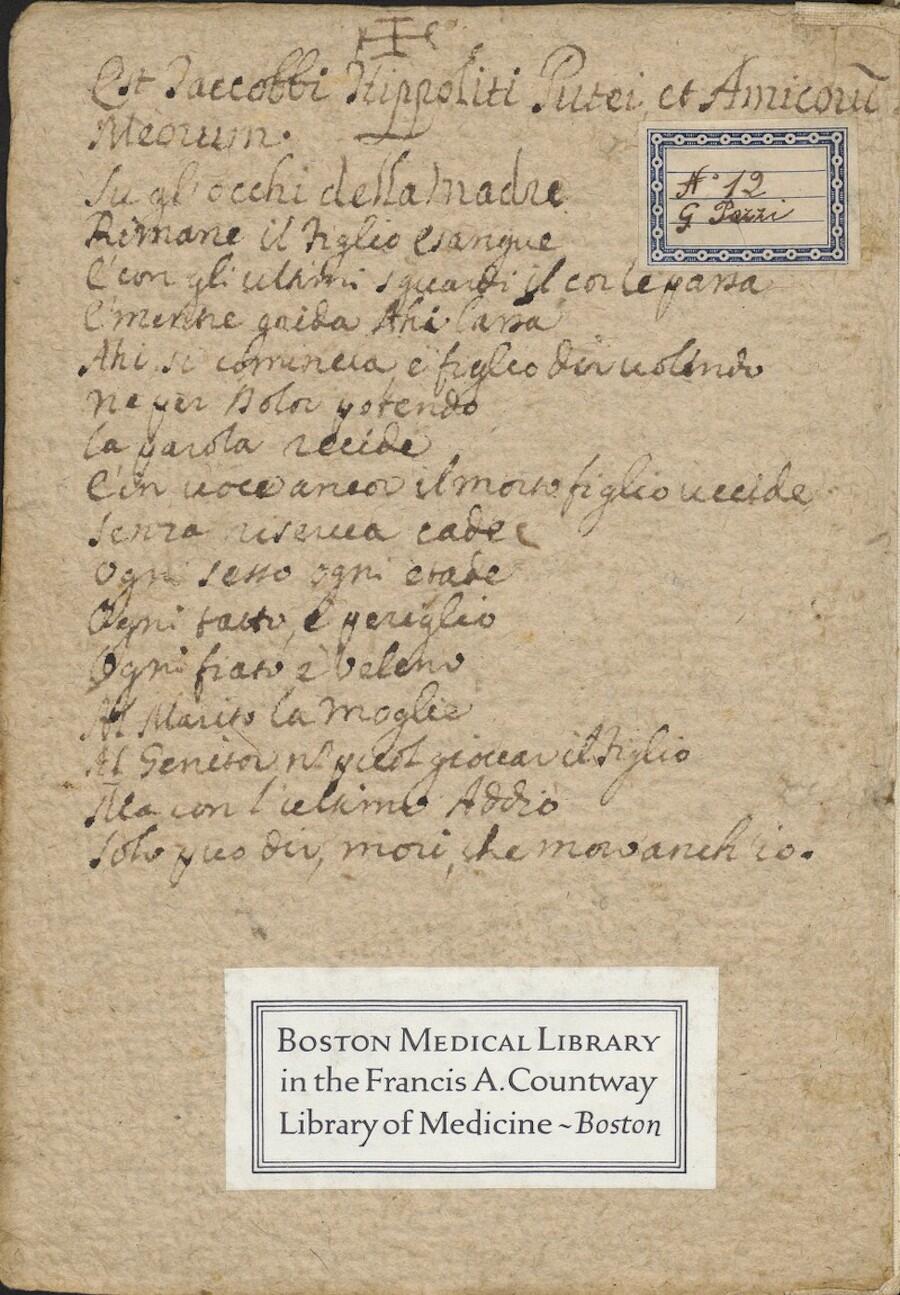 Est Jaccobbi Hippoliti Putei, et Amicorū
Meorum.
N° 12
G Pozzi
Su gl'occhi della Madre
Rimane il Figlio esangue
E con gli ultimi sguardi il cor le passa
E mentre grida Ahi lassa
Ahi si comincia e figlio dir uolendo
ne per dolor potendo
la parola recide
E in uoce ancor il morto figlio uccide
Senza riserua cade
Ogni sesso ogni etade
Ogni tatto, è periglio
Ogni fiato è veleno
Al Marito la Moglie
Al Genitor il Figlio
Ma con l'ultimo Addio
Solo puo dir, mori, che moro anch'io.
Boston Medical Library
in the Francis A. Countway
Library of Medicine ~ Boston